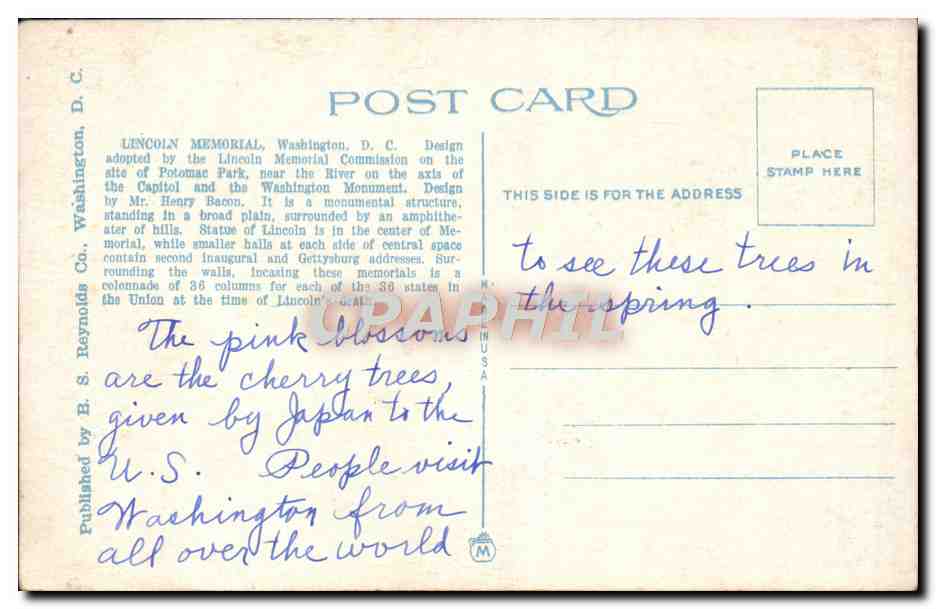 POST CARD
PLACE
STAMP HERE
THIS SIDE IS FOR THE ADDRESS
Published by B. S. Reynolds Co., Washington, D. C.
LINCOLN MEMORIAL, Washington, D. C. Design
adopted by the Lincoln Memorial Commission on the
site of Potomac Park, near the River on the axis of
the Capitol and the Washington Monument. Design
by Mr. Henry Bacon. It is a monumental structure,
standing in a broad plain, surrounded by an amphithe-
ater of hills. Statue of Lincoln is in the center of Me-
morial, while smaller halls at each side of central space
contain second inaugural and Gettysburg addresses. Sur-
rounding the walls, incasing these memorials is a
colonnade of 36 columns for each of the 36 states in
the Union at the time of Lincoln's death
The pink blossoms
are the cherry trees,
given by Japan to the
U.S. People visit
Washington from
all over the world
to see these trees in
the spring.
CPAPHIL
IN USA
M